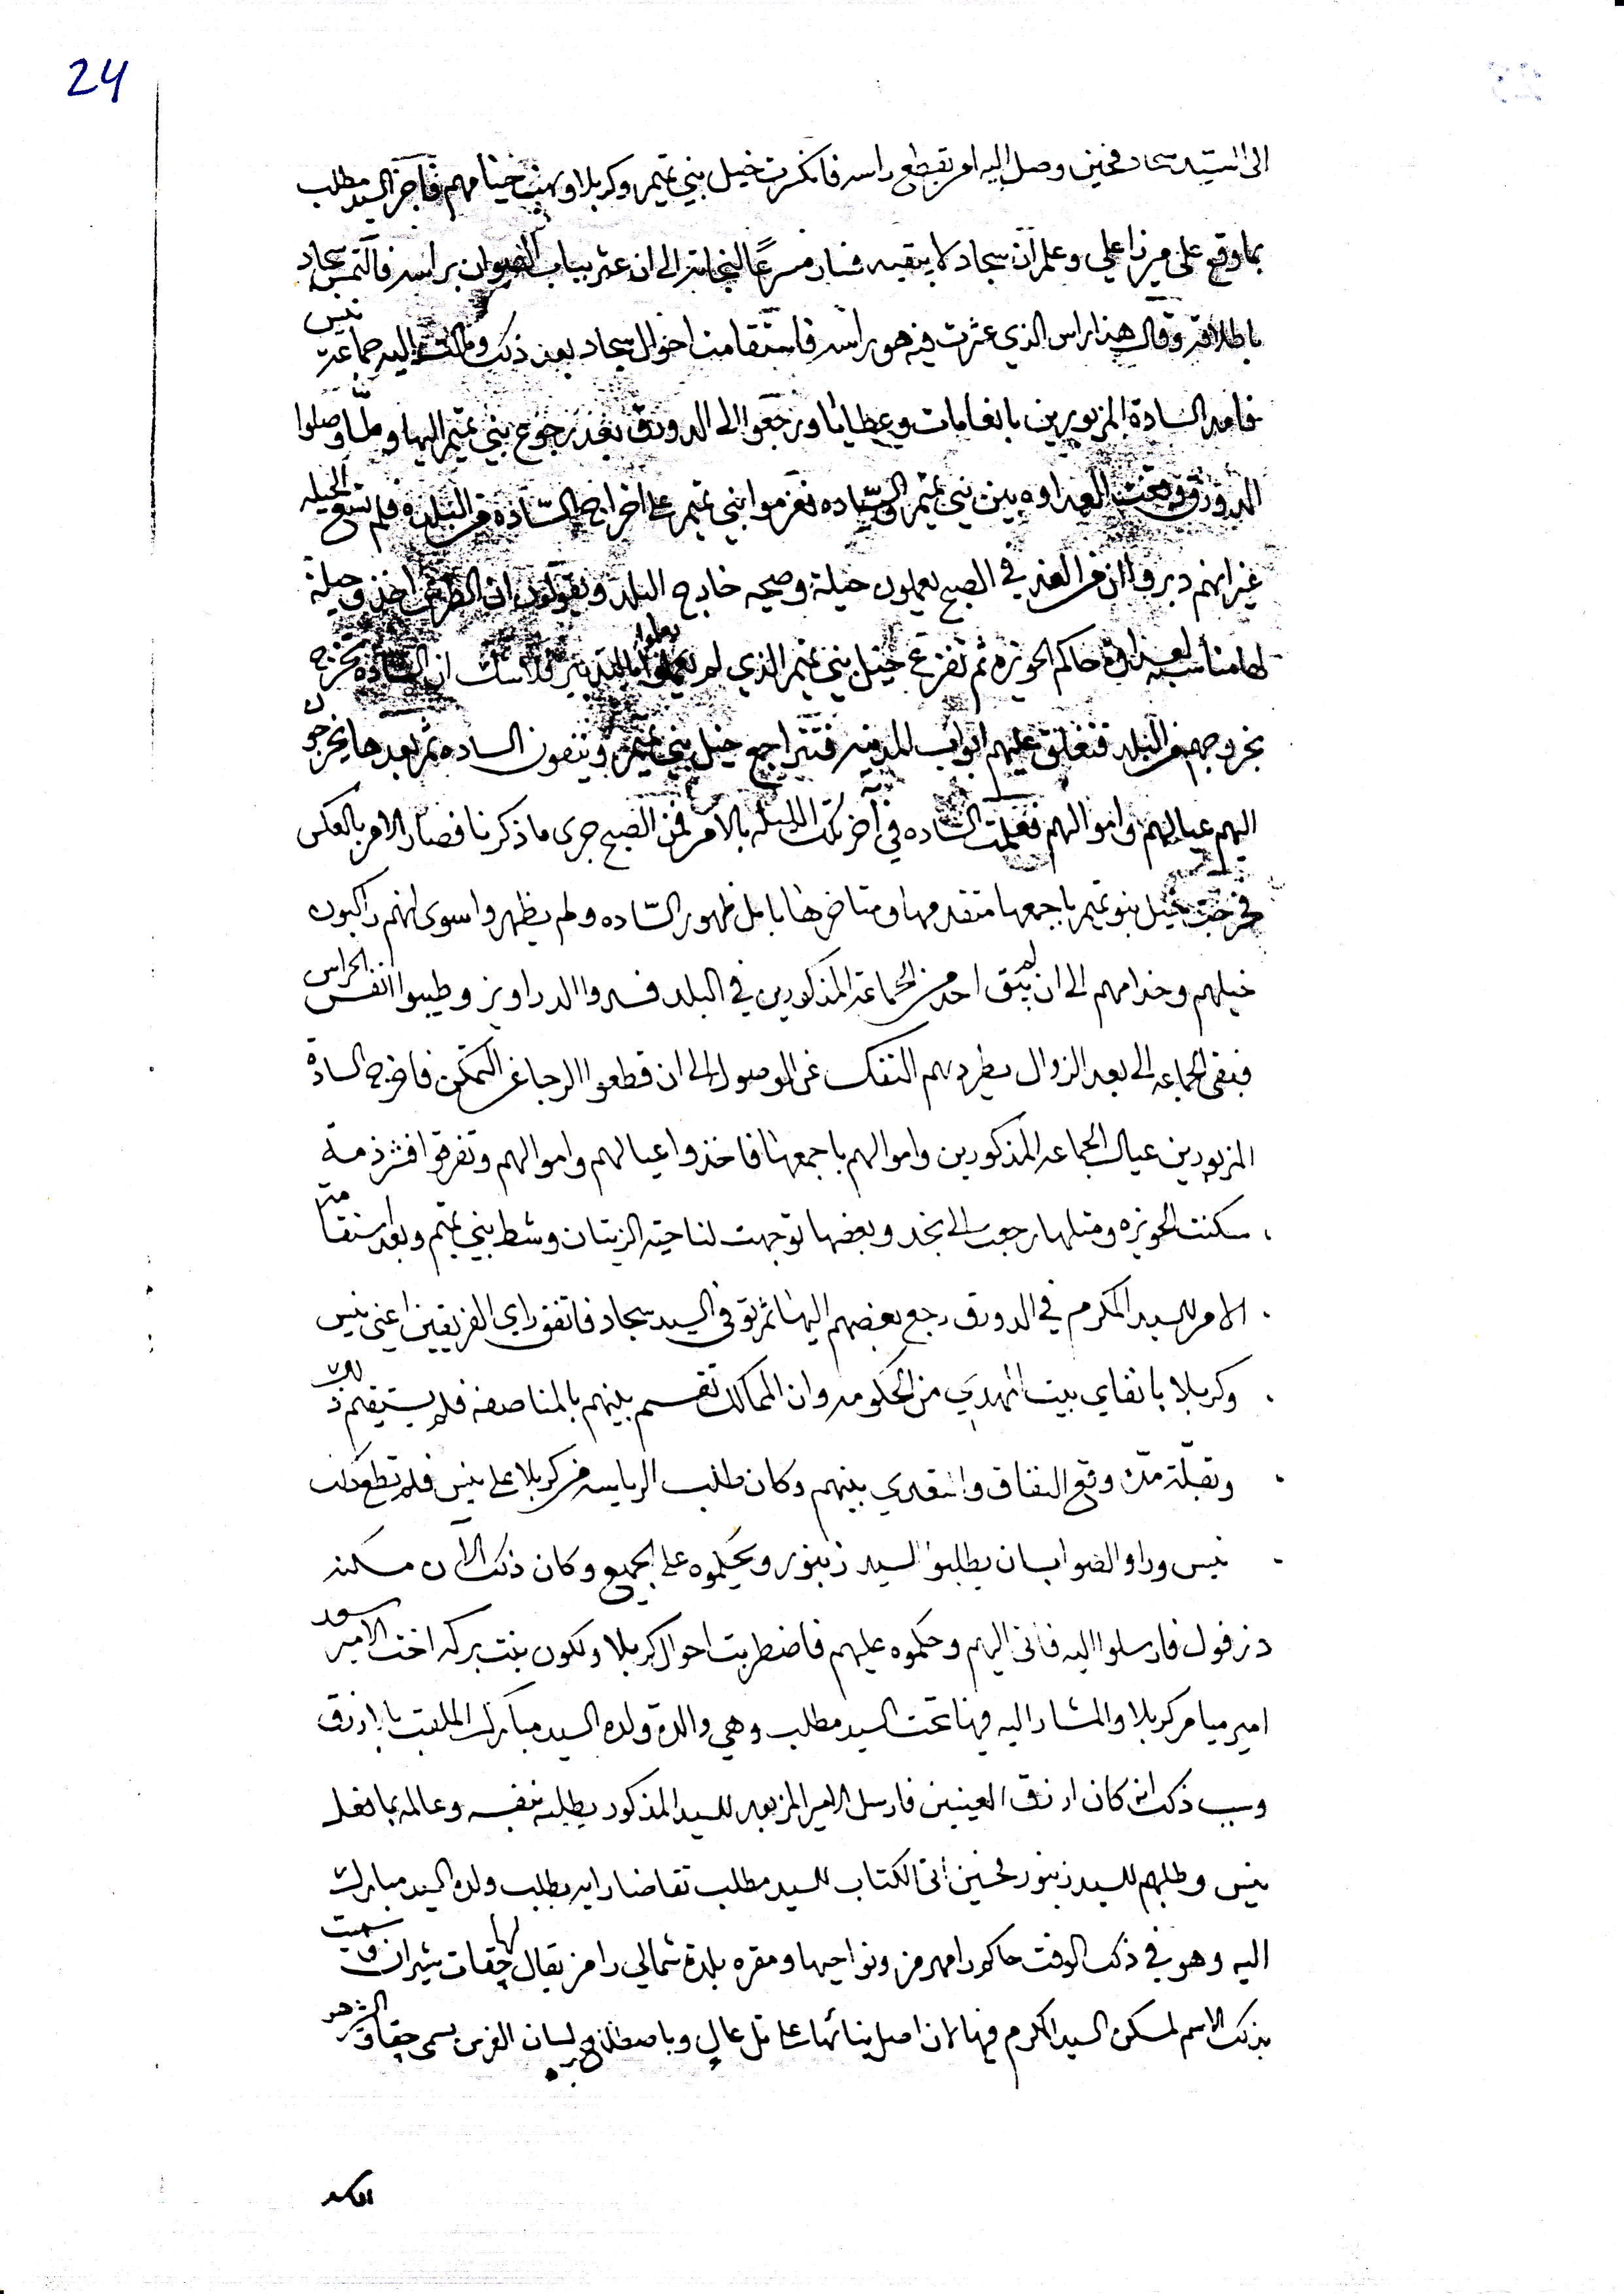 24
الى السيد سجاد فحين وصل اليه امر بقطع راسه فانكسرت خيل بني تميم وكربلا ونهبت خيامهم فاخبر السيد مطلب
بما وقع على ميرزا علي وعلم ان سجاد لا يبقيه فسار مسرعًا لنجاته الى ان عثر بباب الضيوان براسه فالتمس سجاد
باطلاقه وقال هذا راس الذي عثرت فيه هو راسه فاستقامت احوال سجاد بعد ذلك ومالت اليه جماعة نيس
فامد السادة المزبورين بانعامات وعطايا ورجعوا الى الدورق بعد رجوع بني تميم اليها ولما وصلوا
الدورق وقعت العداوه بين بني تميم والسّاده فعزموا بني تميم على اخراج السّادة من البلدة فلم تسع الحيله
غير انهم دبروا ان من الغد في الصبح يعملون حيلة وصيحه خارج البلد ويقولون ان اخذ وحيلة
حاكم الحويزه ثم تفزع خيل بني تميم الذي لم يعلموا بالتدبير فلا شك ان السادة تخرج
بخروجهم من البلد فتغلق عليهم ابواب المدينه فتتراجع خيل بني تميم وينفون الساده ثم بعدها يخرجون
اليهم عيالهم واموالهم فعلمت الساده في آخر تلك الليله بالامر فمن الصبح جرى ما ذكرنا فصار الامر بالعكس
فخرجت خيل بنو تميم باجمعها متقدمها ومتاخرها بامل ظهور السّاده ولم يظهروا سوى انهم راكبون
خيلهم وخدامهم الى ان لم يبق احد من الجماعة المذكورين في البلد فسدوا الدراويز وطيبوا انفس الحراس
فبقى الجماعه الى بعد الزوال يطردهم التفنك عن الوصول الى ان قطعوا الرجا عن التمكن فاخرج السادة
المزبورين عيال الجماعه المذكورين واموالهم باجمعها فاخذوا عيالهم واموالهم وتفرقوا فشرذمة
سكنت الحويزه ومثلها رجعت الى نجد وبعضها توجهت لناحية الزيتان وشط بني تميم وبعد استقامة
الامر للسيد المكرم في الدورق رجع بعضهم اليها ثم توفى السيد سجاد فاتفق راي الفريقين اعني نيس
وكربلا بانفاي بيت المهدي من الحكومه وان الممالك تقسم بينهم بالمناصفه فلم يستقيم ذلك
وبقلة مدة وقع النفاق والتعدي بينهم وكان طلب الرياسه من كربلا على نيس فلم تطع ذلك
نيس وراو الصواب ان يطلبوا السيد زنبور ويحكموه على الجميع وكان ذلك الآن مسكنه
دزفول فارسلوا اليه فاتى اليهم وحكموه عليهم فاضطربت احوال كربلا ولكون بنت بركه اخت الامير سعد
امير ميامر كربلا والمشار اليه فيها تحت السيد مطلب وهي والدة ولده السيد مبارك الملقب بالازرق
وسبب ذلك انه كان ازرق العينين فارسل الامير المزبور للسيد المذكور يطلبه بنفسه وعالمه بما فعل
نيس وطلبهم للسيد زنبور فحين اتى الكتاب للسيد مطلب تقاضا رايه بطلب ولده السيد مبارك
اليه وهو في ذلك الوقت حاكم رامهرمز ونواحيها ومقره بلدة شمالي رامز يقال لها چقات شيران وسميت
بذلك الاسم لمسكن السيد المكرم فيها لان اصل بنائها على تل عال وباصطلاح لسان الفرس يسمى چقا والشير هو